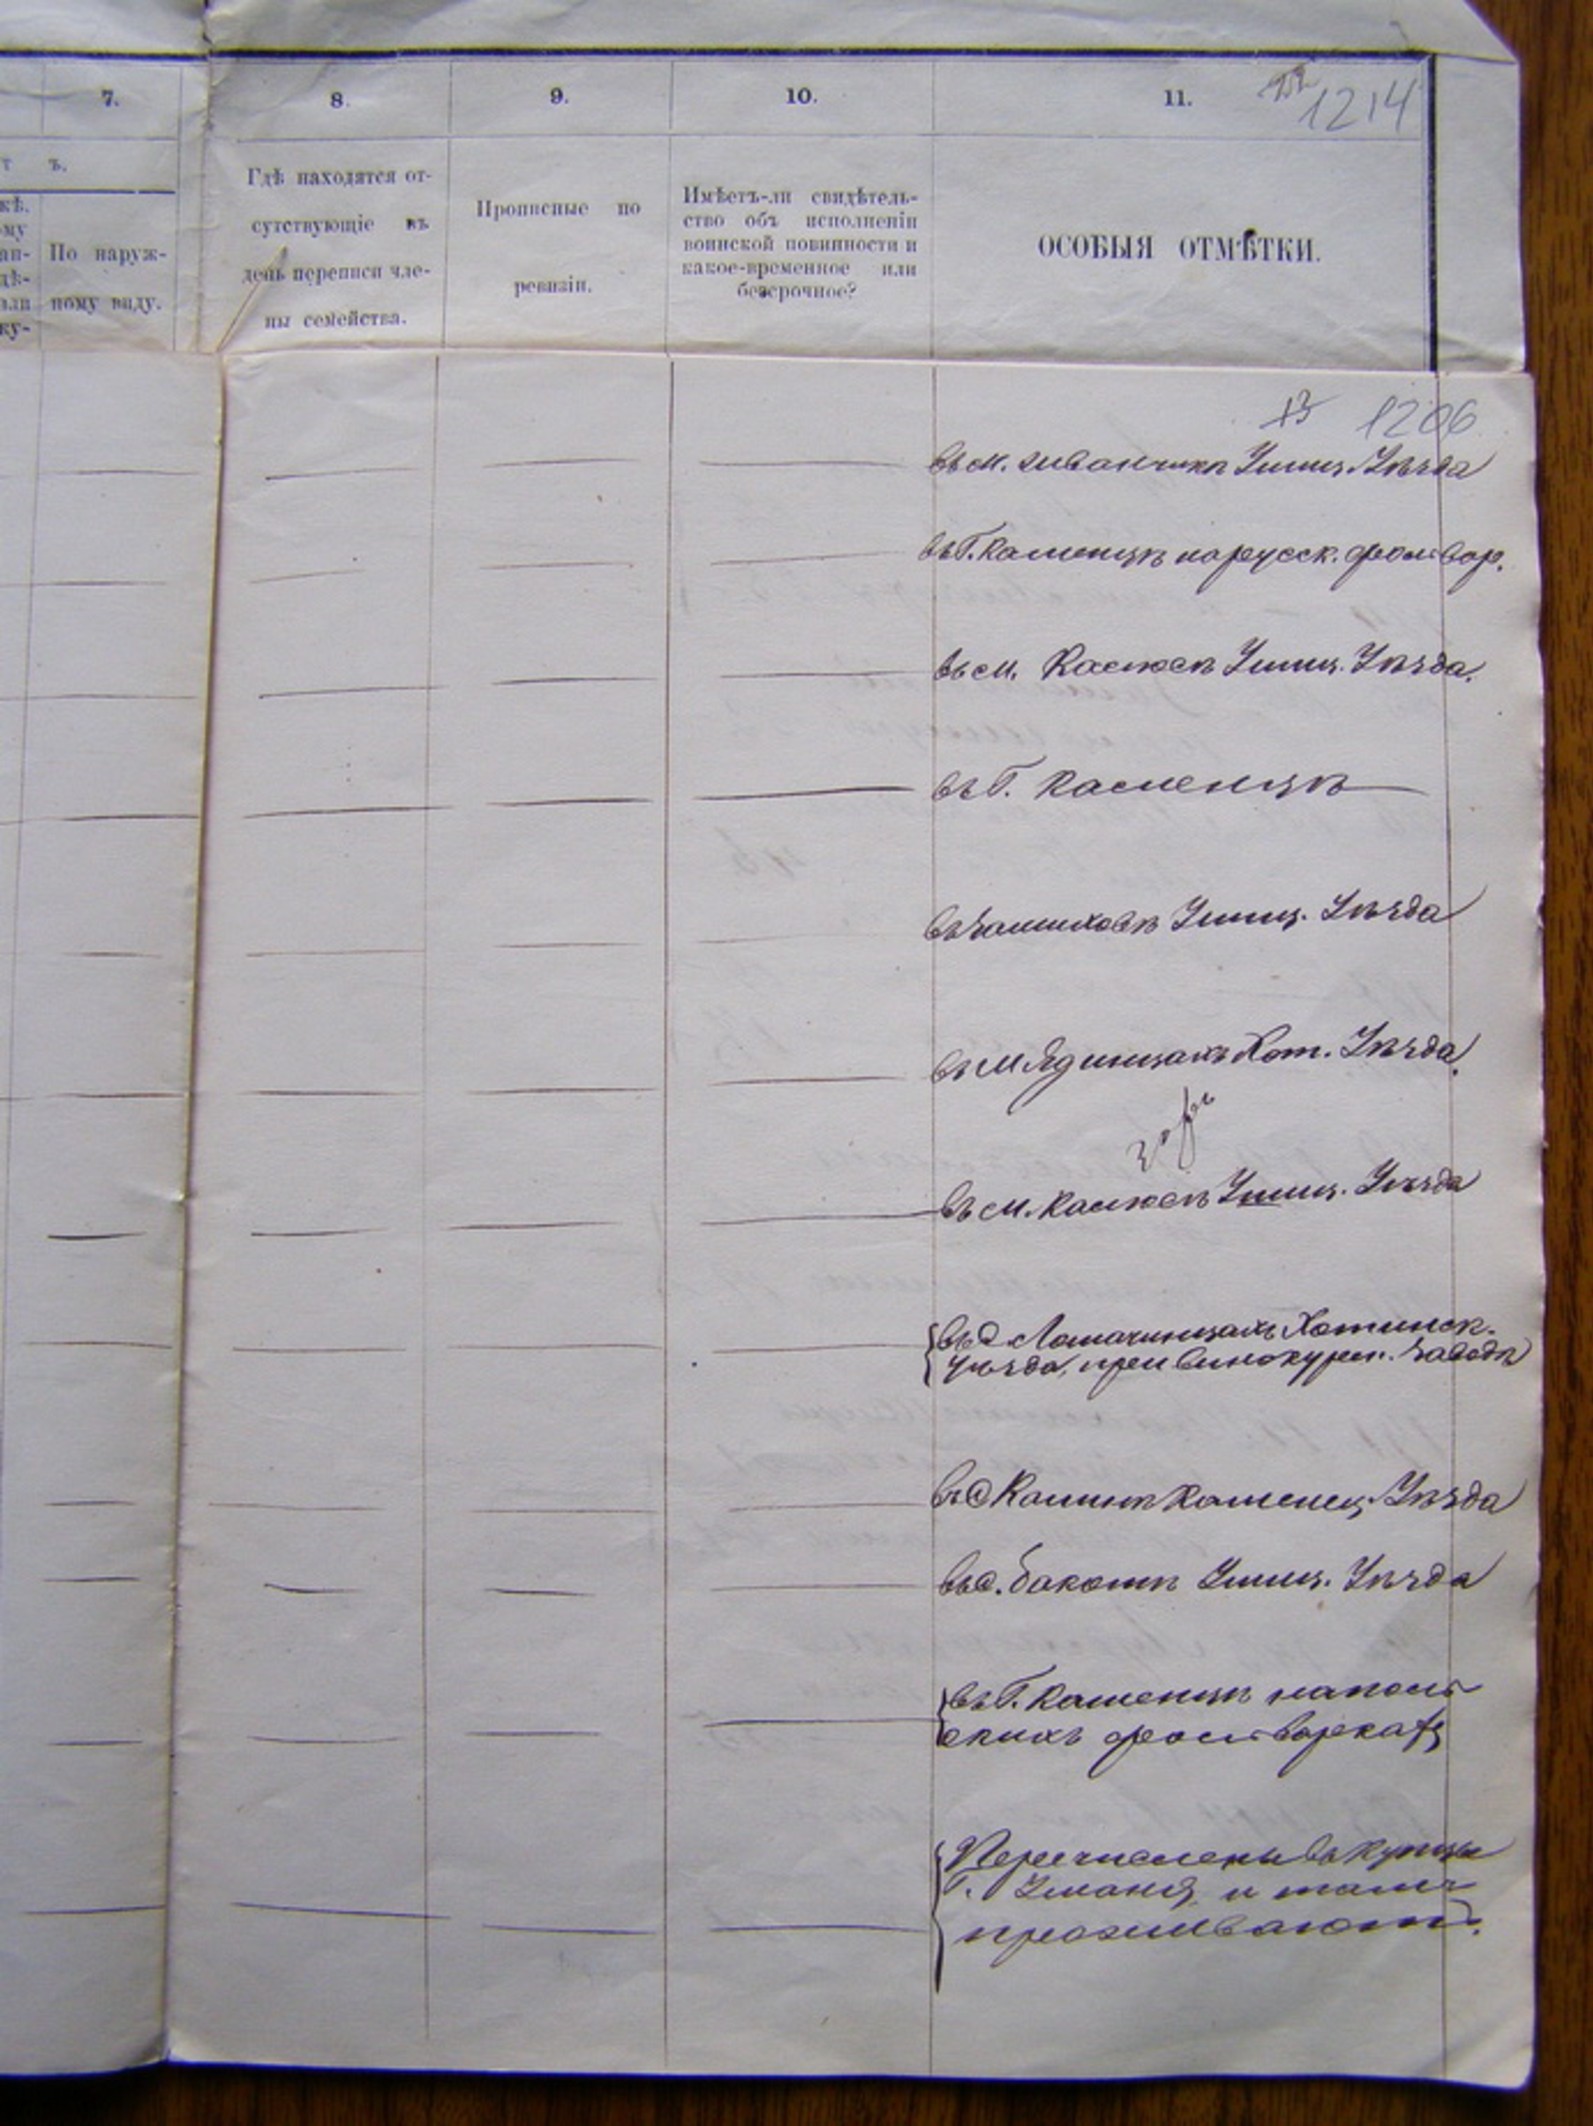 7.
8.
9.
10.
11.
1214
т ъ.
кѣ.
ому
ан-
дѣ-
или
ку-
По наруж-
ному виду.
Гдѣ находятся от-
сутствующіе въ
день переписи чле-
ны семейства.
Прописные по
ревизіи.
Имѣетъ-ли свидѣтель-
ство объ исполненіи
воинской повинности и
какое-временное или
безсрочное?
ОСОБЫЯ ОТМѢТКИ.
13 1206
въ м. Жванчикѣ Ушиц. Уѣзда
въ Г. Каменцѣ на русск. фольвар.
въ м. Калюсѣ Ушиц. Уѣзда.
въ Г. Каменцѣ
въ Ушиц. Уѣзда
въ м Единцахъ Хот. Уѣзда.
въ м. Калюсѣ Ушиц. Уѣзда
въ с Ломачинцахъ Хотинск.
Уѣзда, при винокурен. заводѣ
въ с Каменец. Уѣзда
въ с. Бакотѣ Ушиц. Уѣзда
въ Г. Каменцѣ на поль
скихъ фольваркахъ
Перечислены въ купцы
Г. Уманя и тамъ
проживаютъ.